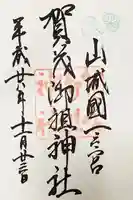 山城國一宮
賀茂御祖神社
平成廿八年十一月廿三日